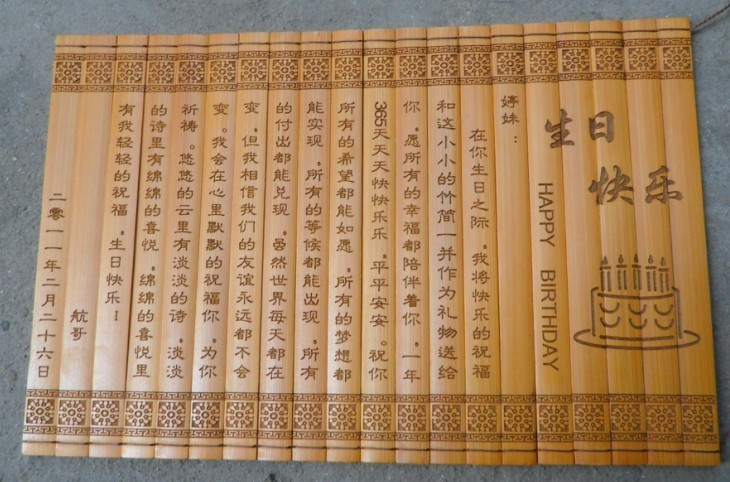 生日
快乐
HAPPY BIRTHDAY
婷妹：
在你生日之际,我将快乐的祝福
和这小小的竹简一并作为礼物送给
你,愿所有的幸福都陪伴着你,一年
365天天天快快乐乐,平平安安。祝你
所有的希望都能如愿,所有的梦想都
能实现,所有的等候都能出现,所有
的付出都能兑现,虽然世界每天都在
变,但我相信我们的友谊永远都不会
变。我会在心里默默的祝福你,为你
祈祷。悠悠的云里有淡淡的诗,淡淡
的诗里有绵绵的喜悦,绵绵的喜悦里
有我轻轻的祝福,生日快乐！
航哥
二零一一年二月二十六日